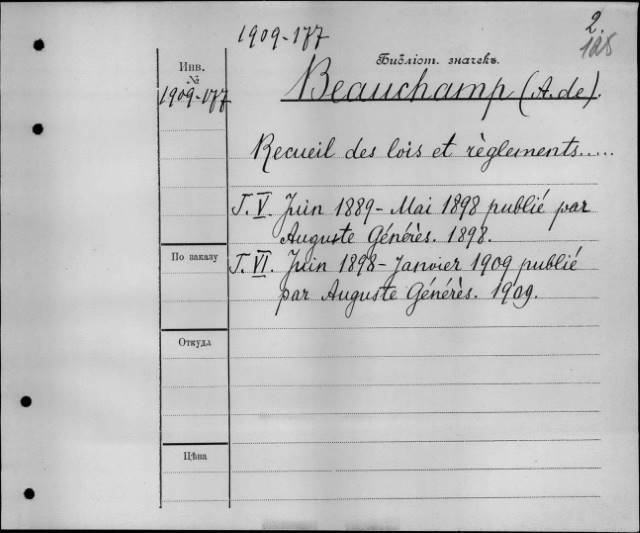 1909-177
2.
125
Библіот. значекъ.
Инв.
№
1909-177
Beauchamp (A. de).
Recueil des lois et règlements.....
T. V. Juin 1889 - Mai 1898 publié par
Auguste Générès. 1898.
По заказу
T. VI. Juin 1898 - Janvier 1909 publié
par Auguste Générès. 1909.
Откуда
Цѣна